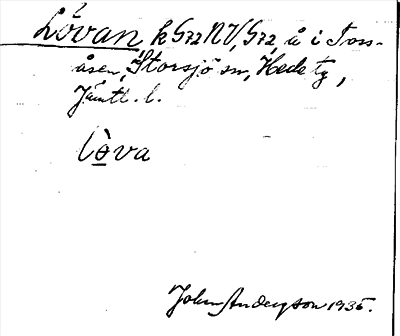 Lövan k G72NV, G72, å i Tors-
åsen, Storsjö sn, Hede tg,
Jämtl. l.
l<u>ò</u>va
John Anderzon 1935.